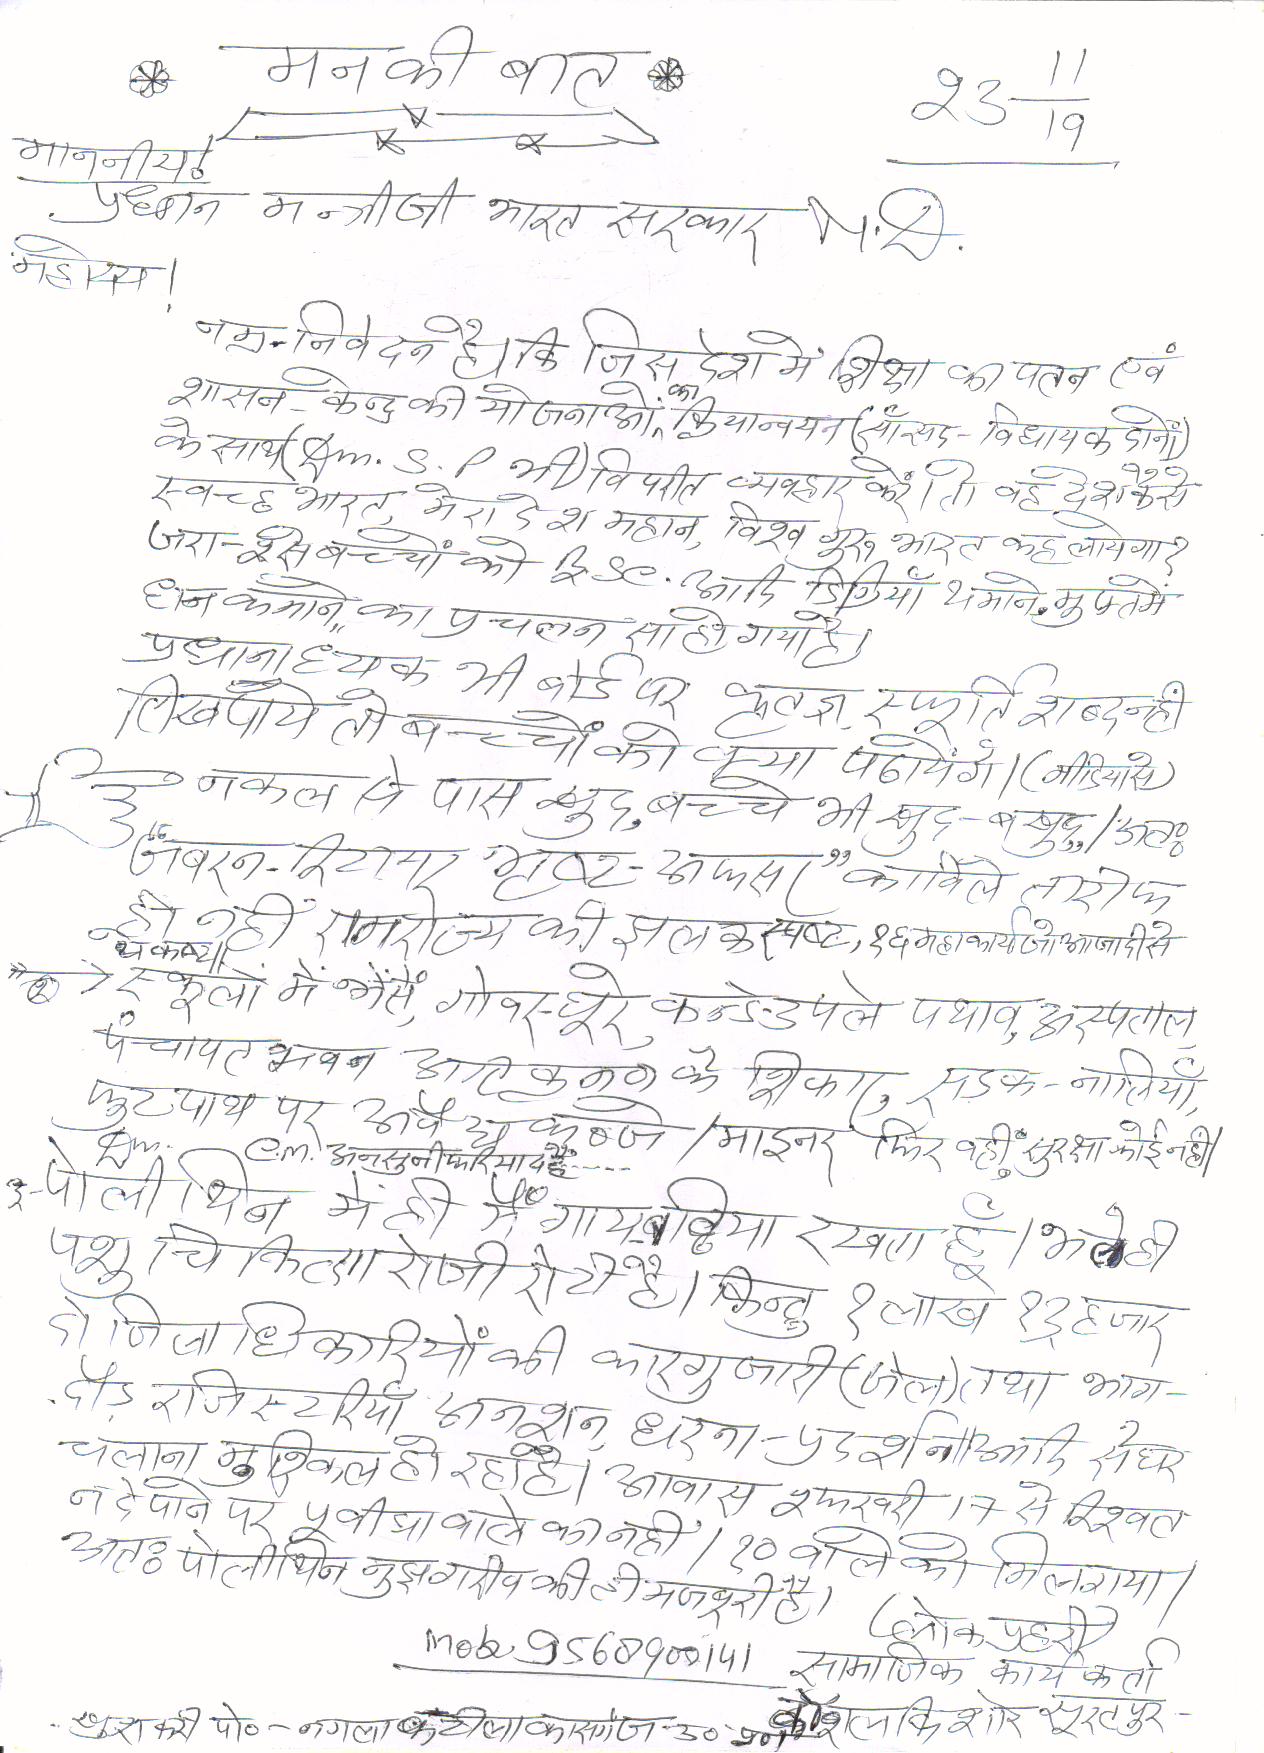 मन की बात
23 11/19
माननीय!
प्रधान मन्त्रीजी भारत सरकार N.D.
महोदय!
नम्र-निवेदन है। कि जिस देश में शिक्षा का पतन एवं
शासन-केन्द्र की योजनाओं का क्रियान्वयन (साँसद-विधायक दोनों)
के साथ (Dm. S. P भी) विपरीत व्यवहार करें। तो वह देश कैसे
स्वच्छ भारत, मेरा देश महान, विश्व गुरु भारत कहलायेगा?
जरा-से बच्चों को B.Sc. आदि डिग्रियाँ थमाने मुफ्त में
धन कमाने का प्रचलन सा हो गया है।
प्रधानाध्यक भी बोर्ड पर कृतज्ञ स्फूर्ति शब्द नहीं
लिख पाँये तो बच्चों को क्या पढायेंगे। (मीडिया से)
नकल से पास खुद, बच्चे भी खुद-बखुद। अतः
"जबरन-रिटायर भ्रष्ट-अफसर" काबिले तारीफ
ही नहीं रामराज्य की झलक स्पष्ट, १६ महाकार्य जो आजादी से
थकथा।
"२" → स्कूलों में भैंसें, गोबर-घूरे, कन्डे-उपले पथाव, अस्पताल,
पंचायत भवन अतिक्रमण के शिकार, सड़क-नालियाँ,
फुटपाथ पर अवैध कब्जे / माइनर फिर वहीं, सुरक्षा कोई नहीं।
Dm. C.m. अनसुनी फरियाद है....
३- पोलीथिन में ही मैं गाय बछिया रखता हूँ। भले ही
पशु चिकित्सा रोजी रोटी है। किन्तु १ लाख १३ हजार
दो जिलाधिकारियों की कारगुजारी (जेल) तथा भाग-
दौड़ रजिस्टरियाँ अनशन, धरना-प्रदर्शन आदि से घर
चलाना मुश्किल हो रहा है। आवास २ फरवरी 17 से रिश्वत
न दे पाने पर पूर्वी ग्रा वाले को नहीं। १० वाले को मिल गया।
अतः पोलीथिन मुझ गरीब की ही मजबूरी है।
(लोक प्रहरी)
mob. 9560900141 सामाजिक कार्य कर्ता
कौशल किशोर सूरतपुर-
पो०-नगला कटीला कासगंज-उ० प्र०